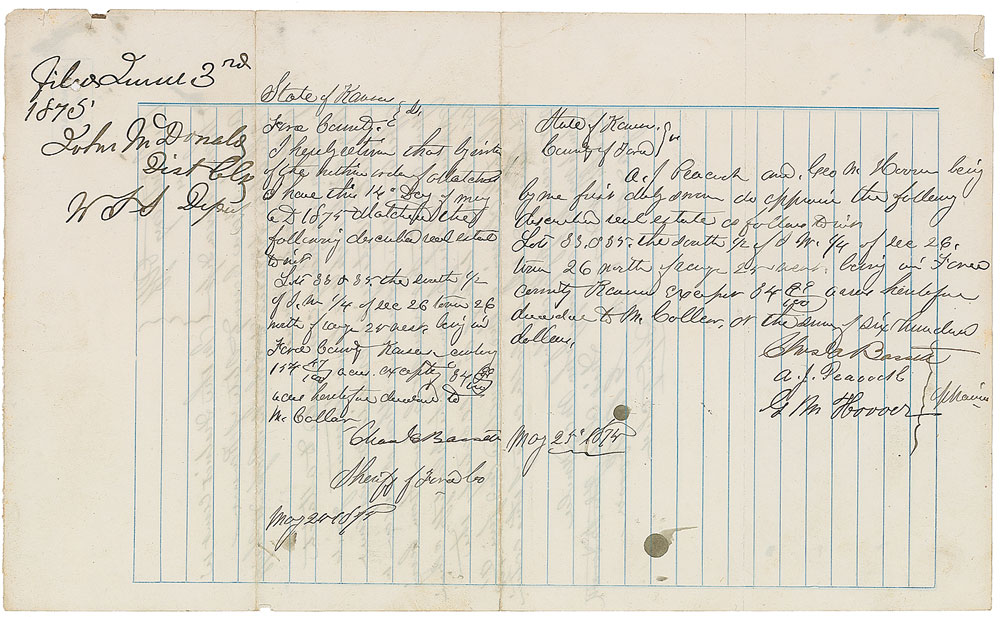 Filed June 3rd
1875
John McDonald
Dist Clk
W S S Deputy
State of Kansas
Ford County
I hereby return that by virtue
of the within order of attachment
I have this 14" Day of May
A D 1875 attached the
following described real estate
to wit
Lots 33 & 35 the south 1/2
of S. W 1/4 of Sec 26 town 26
north of range 25 west, being in
Ford County Kansas
154 47/100 acres excepting 84
acres heretofore
McCollar
Chas E Bassett
Sheriff of Ford Co
May 1875
State of Kansas
County of Ford
A. J Peacock and Geo M Hoover being
by me first duly sworn do appraise the following
described real estate as follows to wit
Lots 33. & 35. the south 1/2 of S W. 1/4 of sec 26.
town 26 north of range 25 west. being in Ford
county Kansas except 84 /100 acres heretofore
to McCollar, at the sum of six hundred
dollars.
Bassett
A. J. Peacock
G M Hoover
May 25" 1875